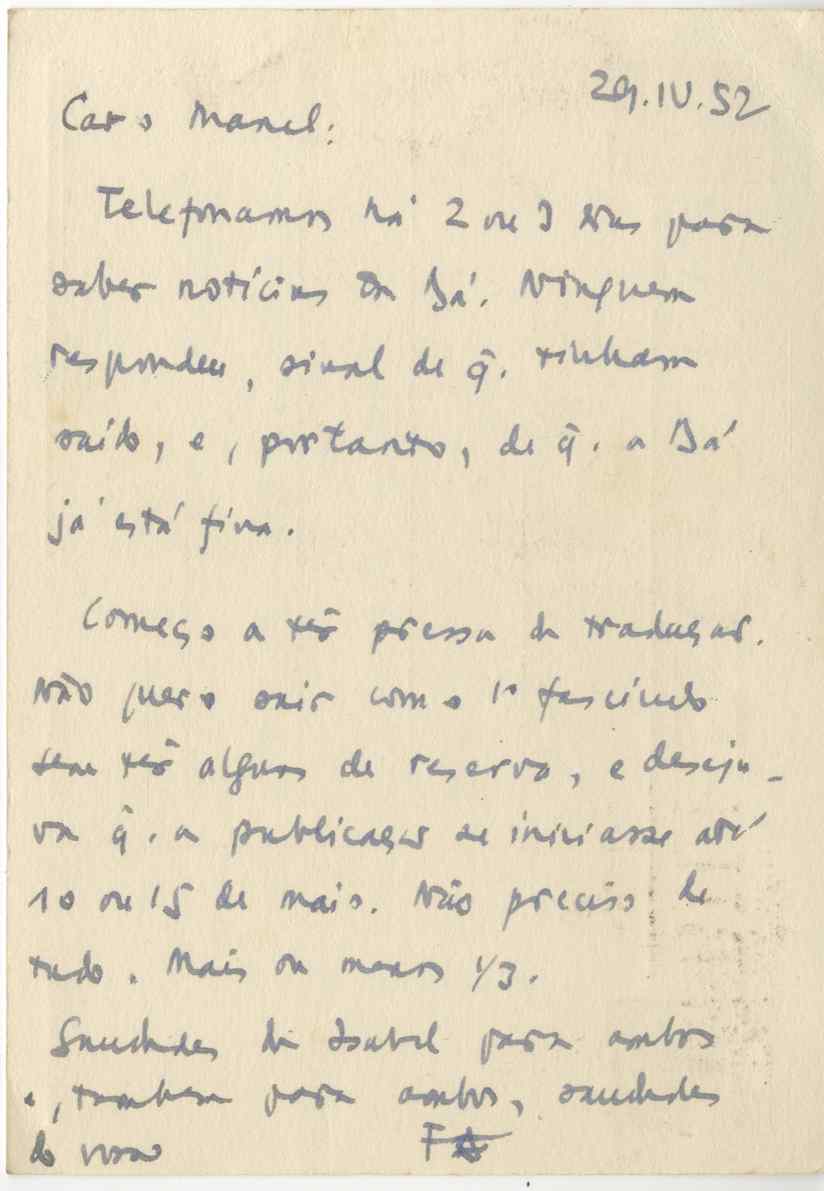 29.IV.52
Caro Manel:
Telefonamos há 2 ou 3 dias para
saber notícias da Bá. Ninguem
respondeu, sinal de q̂. tinham
saído, e, portanto, de q̂. a Bá
já está fina.
Começo a ter pressa da tradução.
Não quero sair com o 1º fascículo
sem ter alguns de reserva, e deseja-
va q̂. a publicação se iniciasse até
10 ou 15 de maio. Não preciso de
tudo. Mais ou menos 1/3.
Saudades da Isabel para ambos
e, tambem para ambos, saudades
do vosso